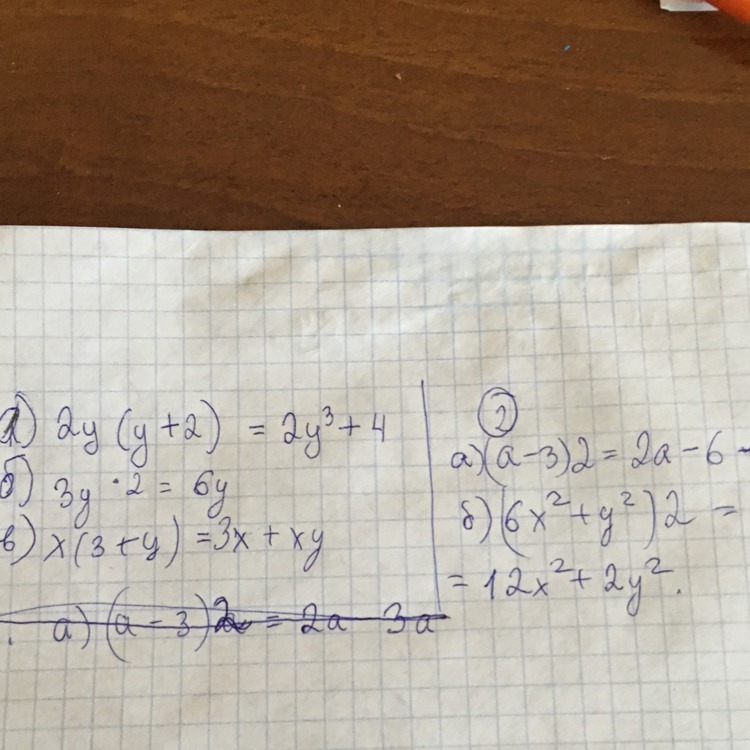 а) 2y (y+2) = 2y³+4
б) 3y · 2 = 6y
в) x(3+y) = 3x + xy
а) (a-3)2 = 2a 3a
2
а) (a-3)2 = 2a - 6 -
б) (6x²+y²)2 =
= 12x²+2y².